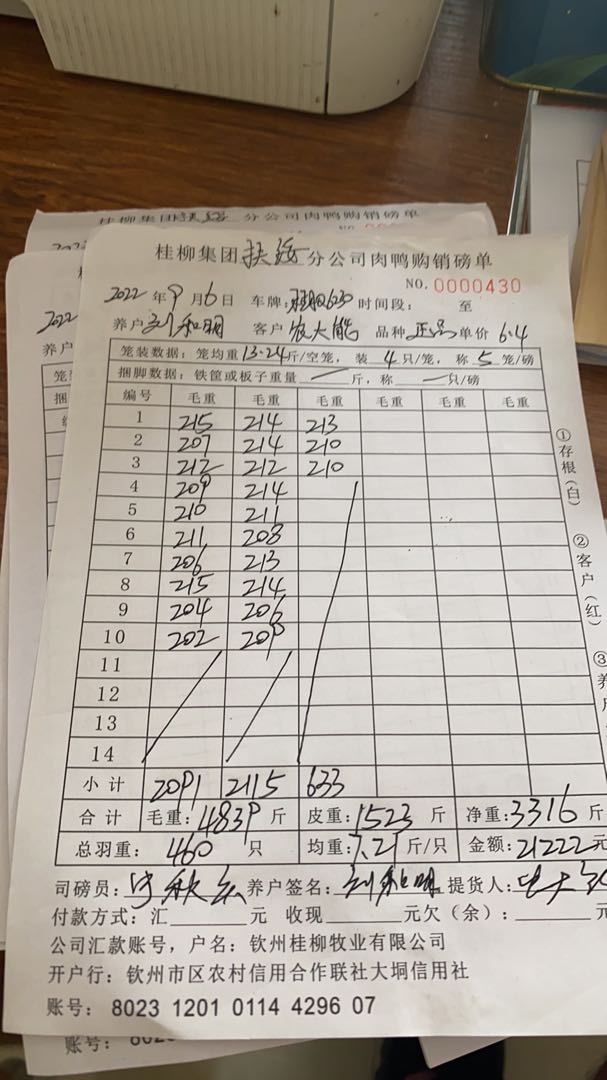 桂柳集团扶绥分公司肉鸭购销磅单
NO.
桂柳集团扶绥分公司肉鸭购销磅单
NO. 0000430
2022年9月6日 车牌: 时间段: 至
养户刘和明 客户农大能 品种正品 单价6.4
笼装数据：笼均重13.24斤/空笼，装4只/笼，称5笼/磅
捆脚数据：铁筐或板子重量 斤，称 只/磅
编号 毛重 毛重 毛重 毛重 毛重
1 215 214 213
2 207 214 210
3 212 212 210
4 209 214
5 210 211
6 211 208
7 206 213
8 215 214
9 204 206
10 202 209
11
12
13
14
小计 2091 2115 633
合计 毛重:4839斤 皮重:1523斤 净重:3316斤
总羽重: 460 只 均重:7.21斤/只 金额:21222元
司磅员: 养户签名:刘和明 提货人:
付款方式：汇 元 收现 元欠（余）： 元
公司汇款账号，户名：钦州桂柳牧业有限公司
开户行：钦州市区农村信用合作联社大垌信用社
账号： 8023 1201 0114 4296 07
①存根(白)
②客户(红)
③养
2022
养户
账号: